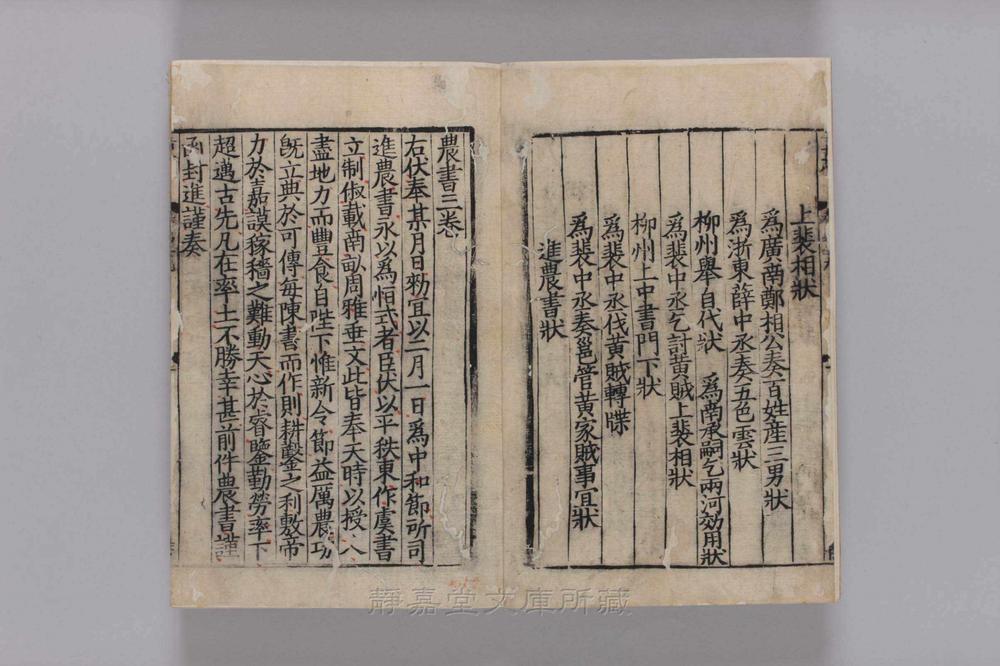 上裴相狀
爲廣南鄭相公奏百姓産三男狀
爲浙東薛中丞奏五色雲狀
柳州舉自代狀　爲南承嗣乞兩河効用狀
爲裴中丞乞討黃賊上裴相狀
柳州上中書門下狀
爲裴中丞伐黃賊轉牒
爲裴中丞奏邕管黃家賊事宜狀
進農書狀
農書三卷
右伏奉某月日勑宜以二月一日爲中和節所司
進農書永以爲恒式者臣伏以平秩東作虞書
立制俶載南畝周雅垂文此皆奉天時以授人
盡地力而豐食自陛下惟新令節益厲農功
旣立典於可傳每陳書而作則耕鑿之利敷帝
力於嘉謨稼穡之難動天心於睿鑒勤勞率下
超邁古先凡在率土不勝幸甚前件農書謹
函封進謹奏
靜嘉堂文庫所藏